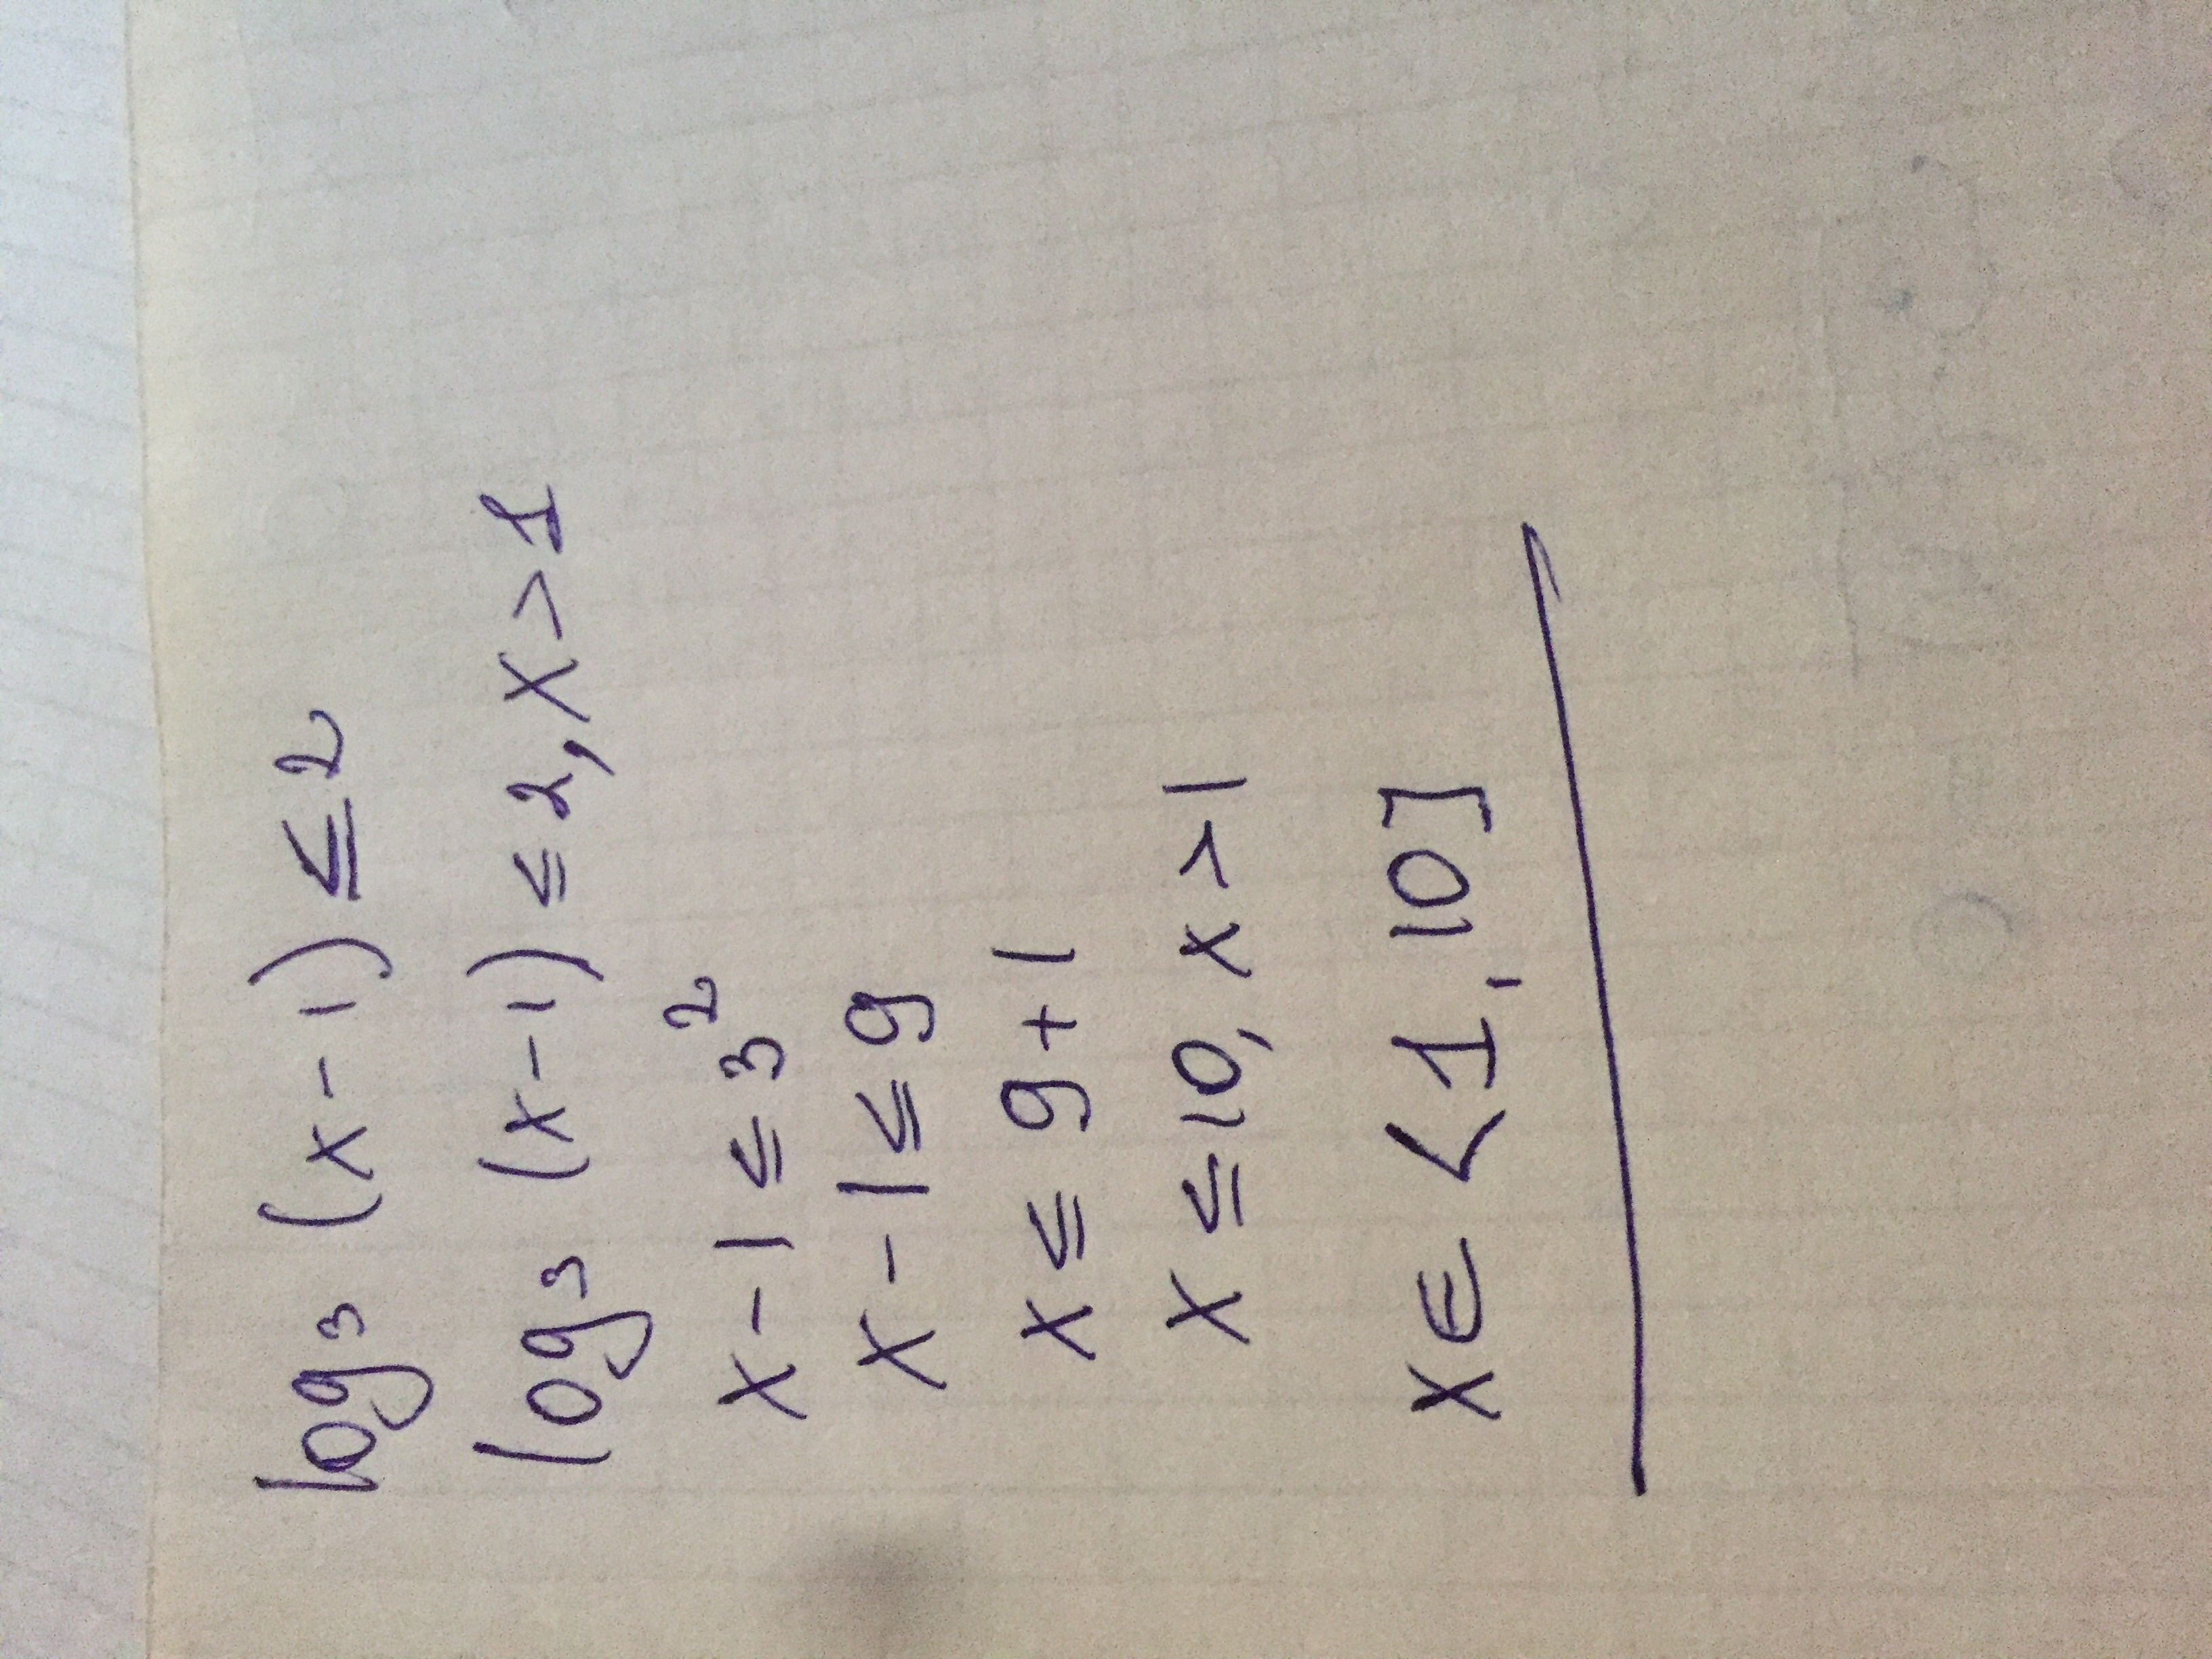 log₃ (x-1) ≤ 2
log₃ (x-1) ≤ 2, x > 1
x-1 ≤ 3²
x-1 ≤ 9
x ≤ 9+1
x ≤ 10, x > 1
x ∈ <1, 10]